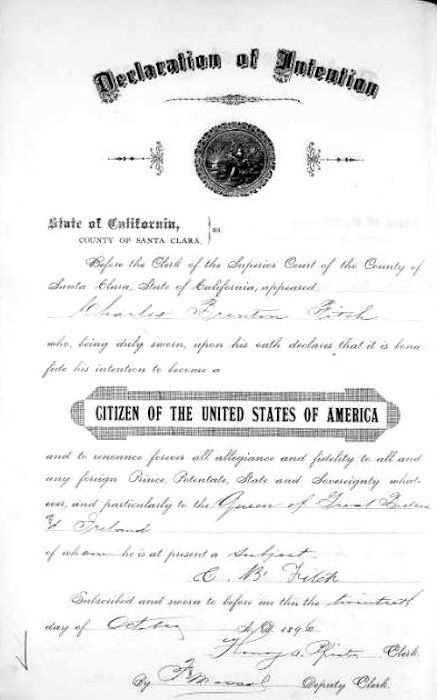 Declaration of Intention
State of California,
COUNTY OF SANTA CLARA, } ss.
Before the Clerk of the Superior Court of the County of
Santa Clara, State of California, appeared
Charles Fitch
who, being duly sworn, upon his oath declares that it is bona
fide his intention to become a
CITIZEN OF THE UNITED STATES OF AMERICA
and to renounce forever all allegiance and fidelity to all and
any foreign Prince, Potentate, State and Sovereignty what-
ever, and particularly to the Queen of Great Britain
Ireland
of whom he is at present a subject.
C. B. Fitch
Subscribed and sworn to before me this the
day of October A.D. 1896
Henry A. Pfister Clerk.
By Deputy Clerk.